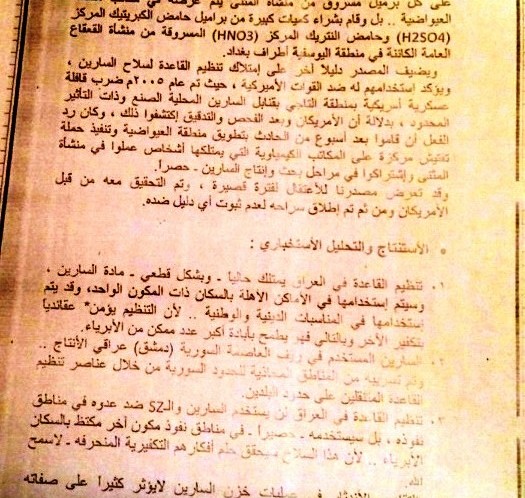 على كل برميل مسروق من منشأة المثنى يتم عرضه في
العيواضية .. بل وقام بشراء كميات كبيرة من براميل حامض الكبريتيك المركز
(H2SO4) وحامض النتريك المركز (HNO3) المسروقة من منشأة القعقاع
العامة الكائنة في منطقة اليوسفية أطراف بغداد.
ويضيف المصدر دليلاً آخر على إمتلاك تنظيم القاعدة لسلاح السارين ،
ويؤكد إستخدامهم له ضد القوات الأميركية ، حيث تم عام ٢٠٠٥م ضرب قافلة
عسكرية أمريكية بمنطقة التاجي بقنابل السارين المحلية الصنع وذات التأثير
المحدود ، بدلالة أن الأمريكان وبعد الفحص والتدقيق إكتشفوا ذلك ، وكان رد
الفعل أن قاموا بعد أسبوع من الحادث بتطويق منطقة العيواضية وتنفيذ حملة
تفتيش مركزة على المكاتب الكيمياوية التي يمتلكها أشخاص عملوا في منشأة
المثنى وإشتراكوا في مراحل بحث وإنتاج السارين - حصراً.
وقد تعرض مصدرنا للأعتقال لفترة قصيرة ، وتم التحقيق معه من قبل
الأمريكان ومن ثم تم إطلاق سراحه لعدم ثبوت أي دليل ضده.
• الأستنتاج والتحليل الأستخباري :
١. تنظيم القاعدة في العراق يمتلك حالياً - وبشكل قطعي - مادة السارين ،
وسيتم إستخدامها في الأماكن الآهلة بالسكان ذات المكون الواحد، وقد يتم
إستخدامها في المناسبات الدينية والوطنية .. لأن التنظيم يؤمن* عقائدياً
بتكفير الآخر وبالتالي فهو يطمح بأبادة أكبر عدد ممكن من الأبرياء.
٢. السارين المستخدم في ريف العاصمة السورية (دمشق) عراقي الأنتاج ..
وتم تسريبه من المناطق المحاذية للحدود السورية من خلال عناصر تنظيم
القاعدة المتنقلين على حدود البلدين.
٣. تنظيم القاعدة في العراق لن يستخدم السارين والـSZ ضد عدوه في مناطق
نفوذه ، بل سيستخدمه - حصراً - في مناطق نفوذ مكون آخر مكتظ بالسكان
الأبرياء .. لأن هذا السلاح سيحقق حلم أفكارهم التكفيرية المنحرفه - لاسمح
الله.
في عمليات خزن السارين لايؤثر كثيراً على صفاته